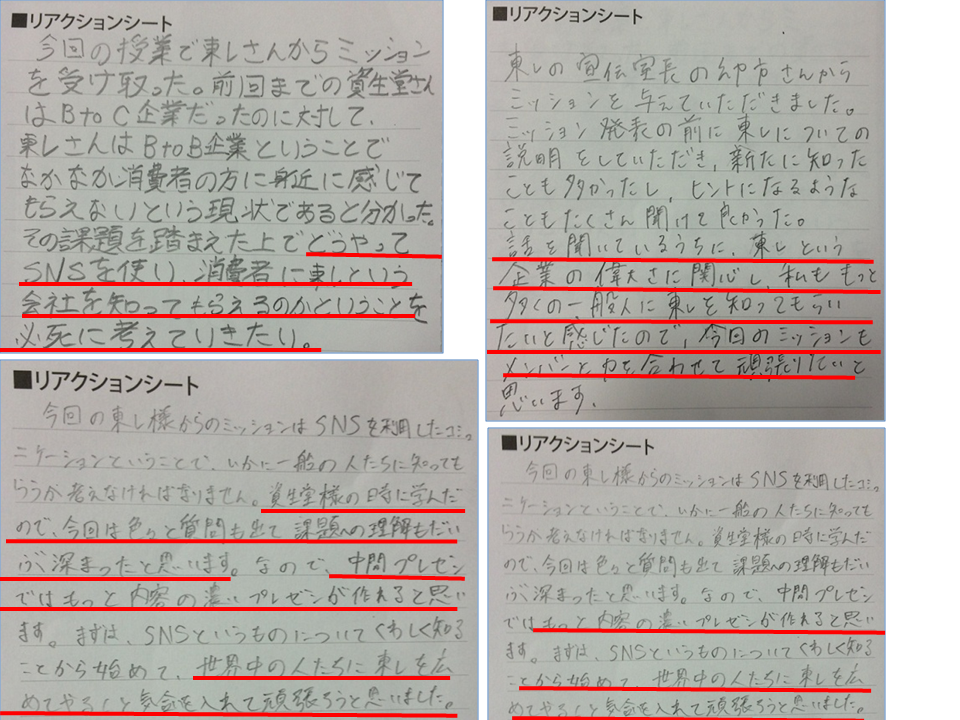 ■リアクションシート
今回の授業で東レさんからミッション
を受け取った。前回までの資生堂さん
はBtoC企業だったのに対して、
東レさんはBtoB企業ということで
なかなか消費者の方に身近に感じて
もらえないという現状であると分かった。
その課題を踏まえた上でどうやって
SNSを使い、消費者に東レという
会社を知ってもらえるのかということを
必死に考えていきたい。
■リアクションシート
東レの宣伝室長の さんから
ミッションを与えていただきました。
ミッション発表の前に東レについての
説明をしていただき、新たに知った
ことも多かったし、ヒントになるような
こともたくさん聞けて良かった。
話を聞いているうちに、東レという
企業の偉大さに関心し、私ももっと
多くの一般人に東レを知ってもらい
たいと感じたので、今回のミッションも
メンバーと力を合わせて頑張りたいと
思います。
■リアクションシート
今回の東レ様からのミッションはSNSを利用したコミュ
ニケーションということで、いかに一般の人たちに知っても
らうか考えなければなりません。資生堂様の時に学んだ
ので、今回は色々と質問も出て課題への理解もだい
ぶ深まったと思います。なので、中間プレゼン
ではもっと内容の濃いプレゼンが作れると思い
ます。まずは、SNSというものについてくわしく知る
ことから始めて、世界中の人たちに東レを広
めてやるくと気合を入れて頑張ろうと思いました。
■リアクションシート
今回の東レ様からのミッションはSNSを利用したコミュ
ニケーションということで、いかに一般の人たちに知っても
らうか考えなければなりません。資生堂様の時に学んだ
ので、今回は色々と質問も出て課題への理解もだい
ぶ深まったと思います。なので、中間プレゼン
ではもっと内容の濃いプレゼンが作れると思い
ます。まずは、SNSというものについてくわしく知る
ことから始めて、世界中の人たちに東レを広
めてやるくと気合を入れて頑張ろうと思いました。